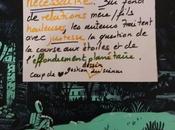 nécessaire. Sur fond
de relations mère/fils
houleuses, les auteurs traitent
avec justesse la question de
la course aux étoiles et de
l'effondrement planétaire.
coup de gestion du dessin